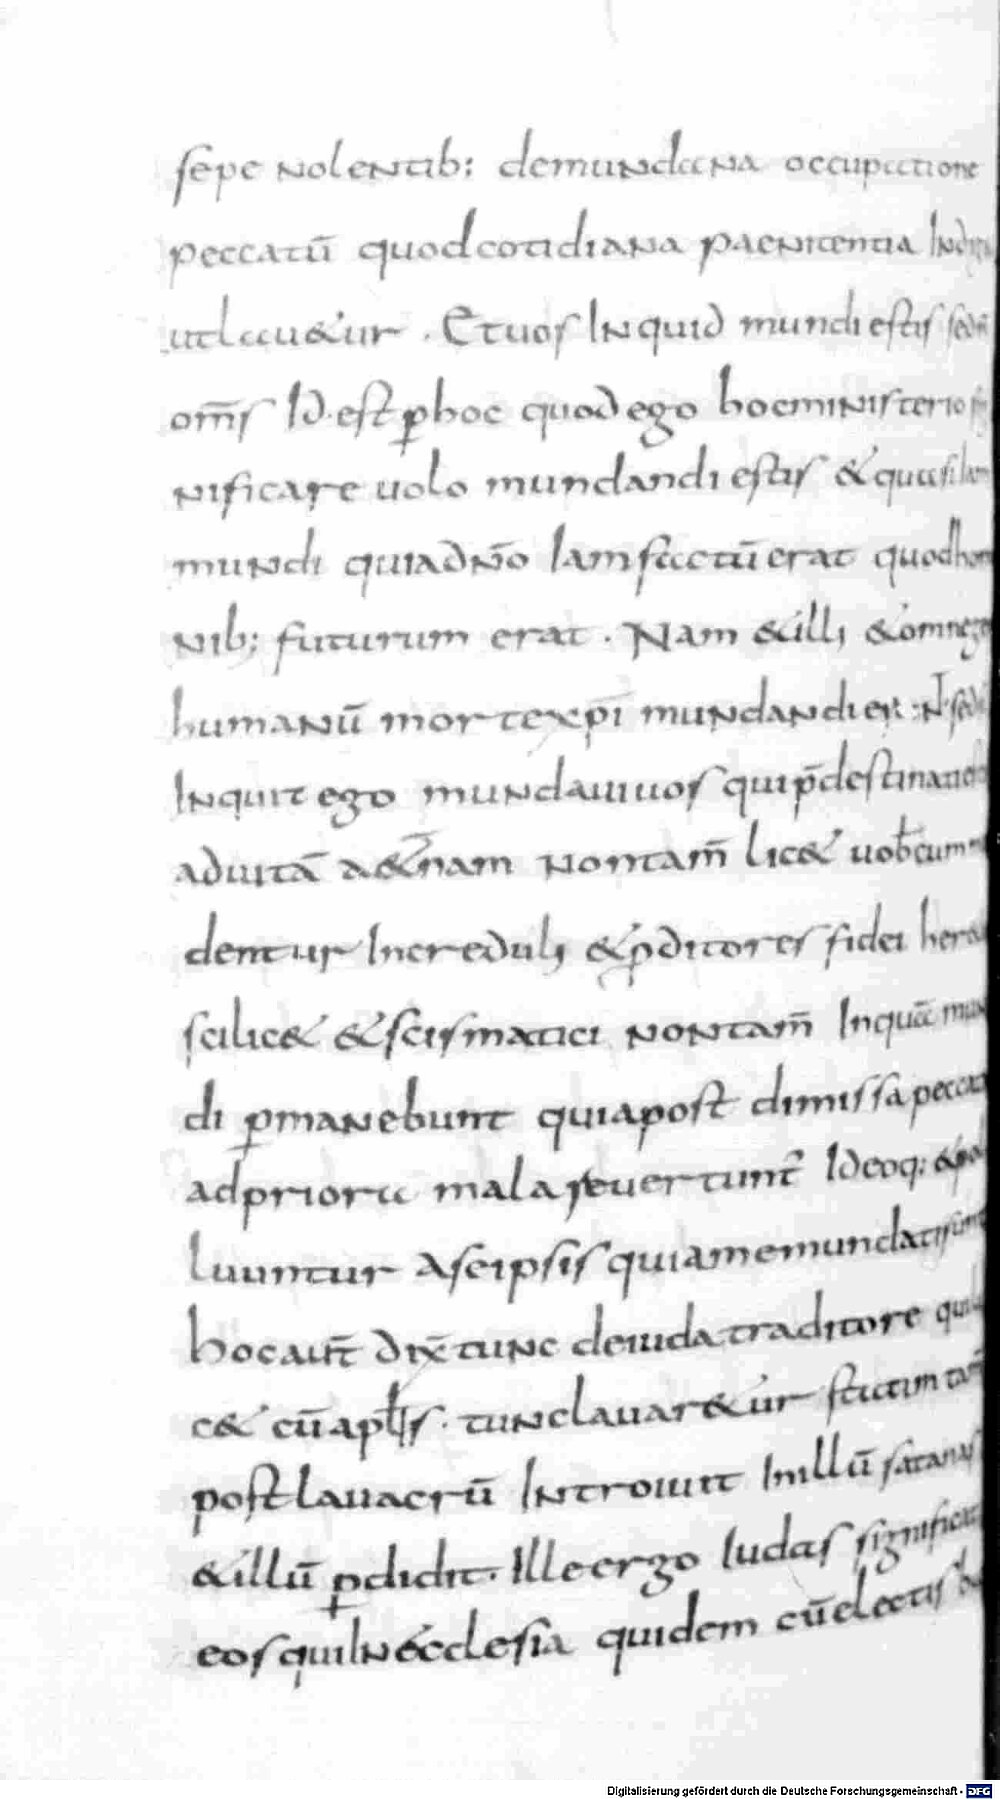 sepe nolentib; demundana occupatione
peccatū quod cotidiana paenitentia Indiget
utlauetur . Et uos Inquid mundi estis sed ñ
om̄s Id·est p̱hoc quod ego hoc ministerio sig
nificare uolo mundandi estis & quasi Iam
mundi quia dño Iam factū erat quod homi
nib; futurum erat . Nam & illi & omne ge
humanū morte xp̄i mundandi er̄ N̄ sed
Inquit ego mundaui uos qui p̄destinati estis
aduitā a&̄nam non tam̄ lic& uob cum
dentur Increduli & p̱ditores fidei here
scilic& & scismatici non tam̄ Inquā mun
di p̱manebunt quia post dimissa peccata
ad priora mala reuertunt̄ Ideoq;
luuntur a se ipsis quia me mundati sunt
hoc aut̄ dix̄ tunc de iuda traditore qui
c& cū apl̄is · tunc lauar&ur statim tam̄
post lauacrū Introiuit In illū satanas
& illū p̱didit· Ille ergo Iudas significat
eos qui In ecclesia quidem cū electis